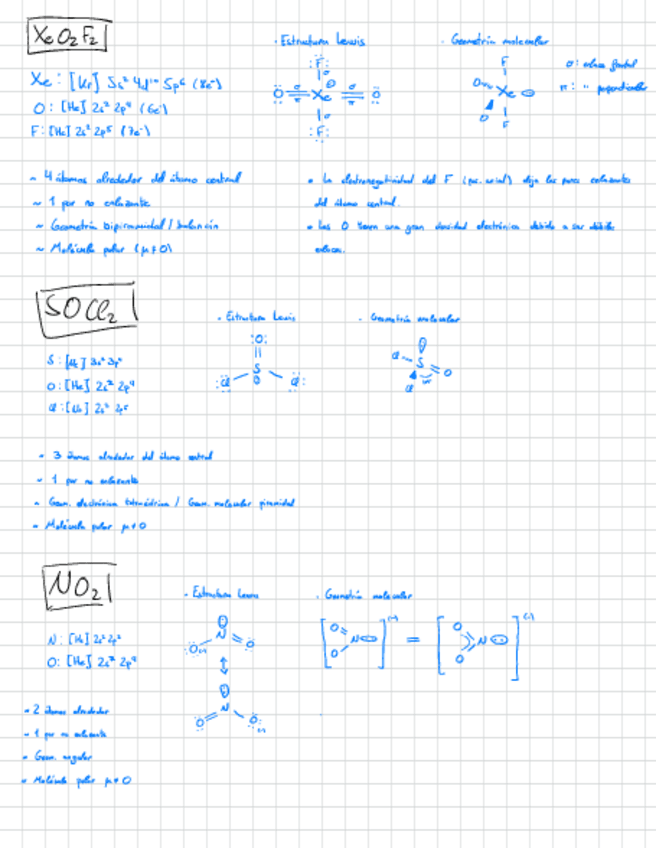 XeO₂F₂
· Estructura Lewis
· Geometría molecular
Xe: [Kr] 5s² 4d¹⁰ 5p⁶ (8e⁻)
O: [He] 2s² 2p⁴ (6e⁻)
F: [He] 2s² 2p⁵ (7e⁻)
:F:
O = Xe = O
:F:
F
O Xe
O
F
σ: enlace frontal
π: " perpendicular
~ 4 átomos alrededor del átomo central
~ 1 par no enlazante
~ Geometría bipiramidal / balancín
~ Molécula polar (μ≠0)
• La electronegatividad del F (pos. axial) deja los pares enlazantes
del átomo central.
• Los O tienen una gran densidad electrónica debido a sus dobles
enlaces.
SOCl₂
· Estructura Lewis
· Geometría molecular
S: [Ne] 3s² 3p⁴
O: [He] 2s² 2p⁴
Cl: [Ne]
:O:
S
:Cl Cl:
Cl S O
Cl
~ 3 átomos alrededor del átomo central
~ 1 par no enlazante
~ Geom. electrónica tetraédrica / Geom. molecular piramidal
~ Molécula polar μ≠0
NO₂
· Estructura Lewis
· Geometría molecular
N: [He] 2s²
O: [He] 2s² 2p⁴
N
O O
N
O O
[O N O]⁽⁻⁾ = [O N O]⁽⁻⁾
~ 2 átomos alrededor
~ 1 par no enlazante
~ Geom. angular
~ Molécula polar μ≠0